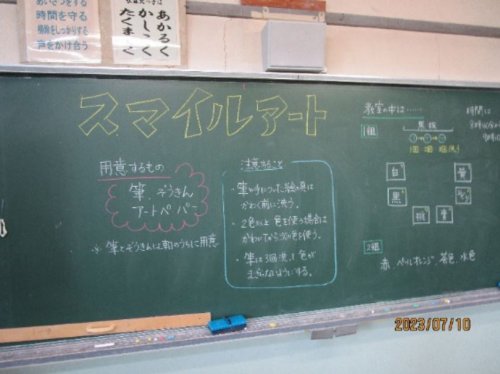 あいさつをする
時間を守る
掃除をしっかりする
声をかけ合う
あかるく
かしこく
たくましく
スマイルアート
用意するもの
筆、ぞうきん
アートペーパー
※ 筆とぞうきんは朝のうちに用意
注意すること
・筆や手についた絵の具は
かわく前に洗う。
・2色以上色を使う場合は
かわいてから次の色を使う。
・筆は3回洗い、色が
まざらないようにする。
教室の中は……
1組
黒板
白
黄
黒
桃
青
2組
赤、ペールオレンジ、茶色、水色
時間に
2023/07/10